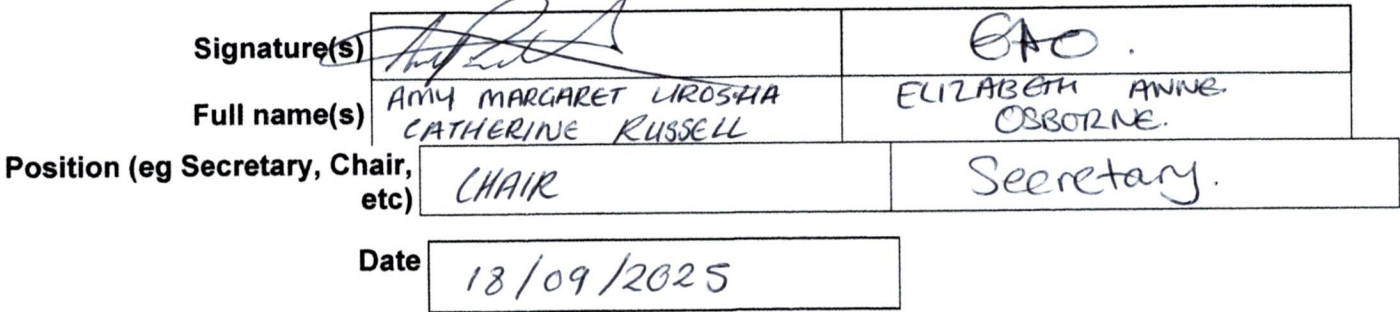 Signature(s) EAO.
Full name(s) AMY MARGARET UROSHA CATHERINE RUSSELL ELIZABETH ANNE OSBORNE.
Position (eg Secretary, Chair, etc) CHAIR Secretary.
Date 18/09/2025